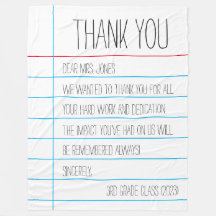 THANK YOU
DEAR MRS. JONES
WE WANTED TO THANK YOU FOR ALL
YOUR HARD WORK AND DEDICATION.
THE IMPACT YOU'VE HAD ON US WILL
BE REMEMBERED ALWAYS!
SINCERELY,
3RD GRADE CLASS (2023)